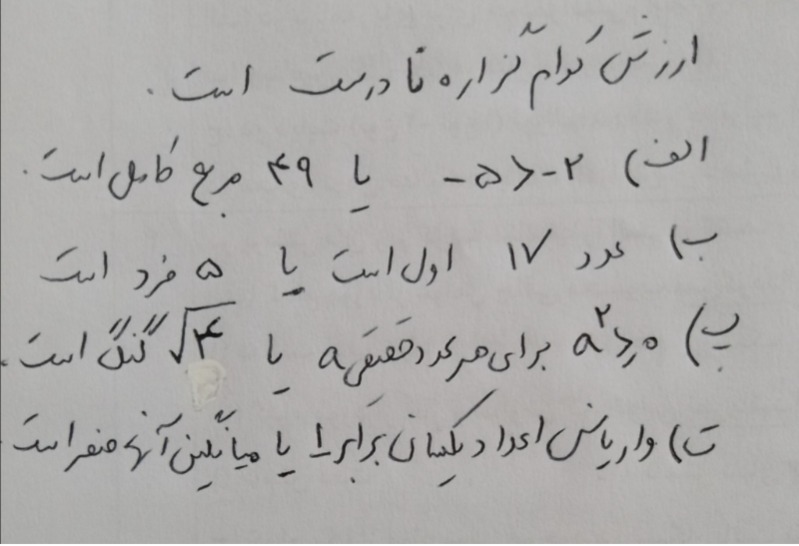 ارزش کدام گزاره نادرست است.
الف) -۵ > -۲ یا ۴۹ مربع کامل است.
ب) عدد ۱۷ اول است یا ۵ فرد است
پ) a² ≥ ۰ برای هر عدد حقیقی a یا √۴ گنگ است.
ت) واریانس اعداد یکسان برابر ۱ یا میانگین آنها صفر است.